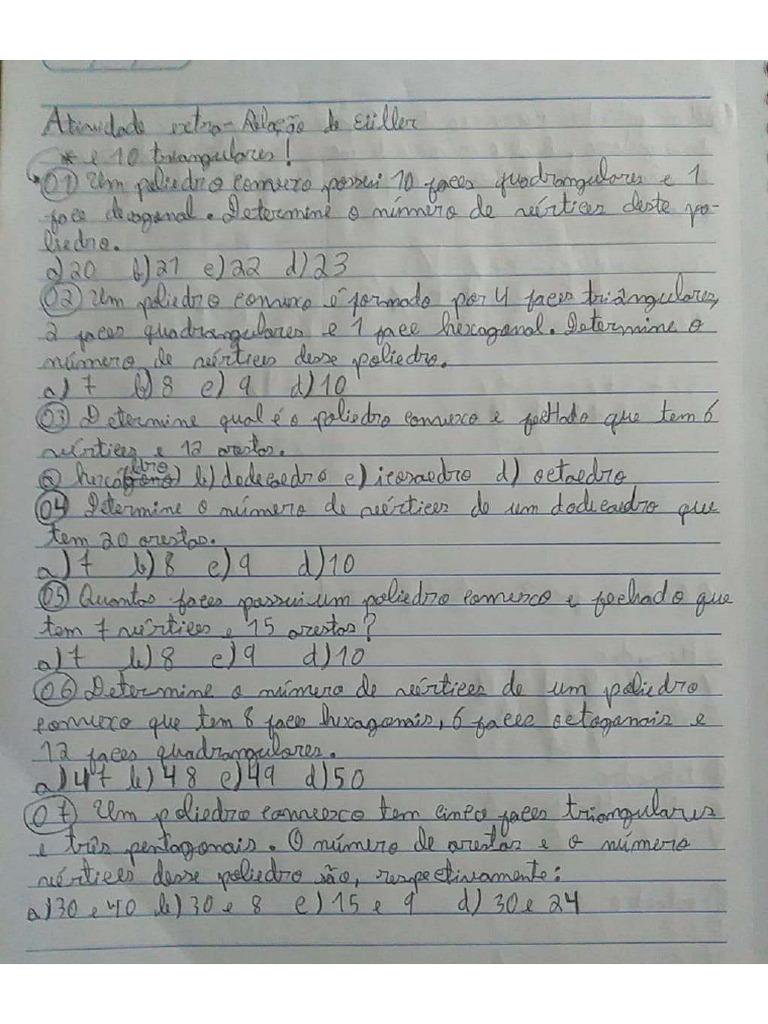 Atividade extra - Relação de Eüller
* e 10 triangulares!
01) Um poliedro convexo possui 10 faces quadrangulares e 1
face decagonal. Determine o número de vértices deste po-
liedro.
a) 20 b) 21 c) 22 d) 23
02) Um poliedro convexo é formado por 4 faces triangulares,
2 faces quadrangulares e 1 face hexagonal. Determine o
número de vértices desse poliedro.
a) 7 b) 8 c) 9 d) 10
03) Determine qual é o poliedro convexo e fechado que tem 6
vértices e 12 arestas.
a) hexaedro b) dodecaedro c) icosaedro d) octaedro
04) Determine o número de vértices de um dodecaedro que
tem 20 arestas.
a) 7 b) 8 c) 9 d) 10
05) Quantas faces possui um poliedro convexo e fechado que
tem 7 vértices e 15 arestas?
a) 7 b) 8 c) 9 d) 10
06) Determine o número de vértices de um poliedro
convexo que tem 8 faces hexagonais, 6 faces octogonais e
12 faces quadrangulares.
a) 47 b) 48 c) 49 d) 50
07) Um poliedro convexo tem cinco faces triangulares
e três pentagonais. O número de arestas e o número
vértices desse poliedro são, respectivamente:
a) 30 e 40 b) 30 e 8 c) 15 e 9 d) 30 e 24